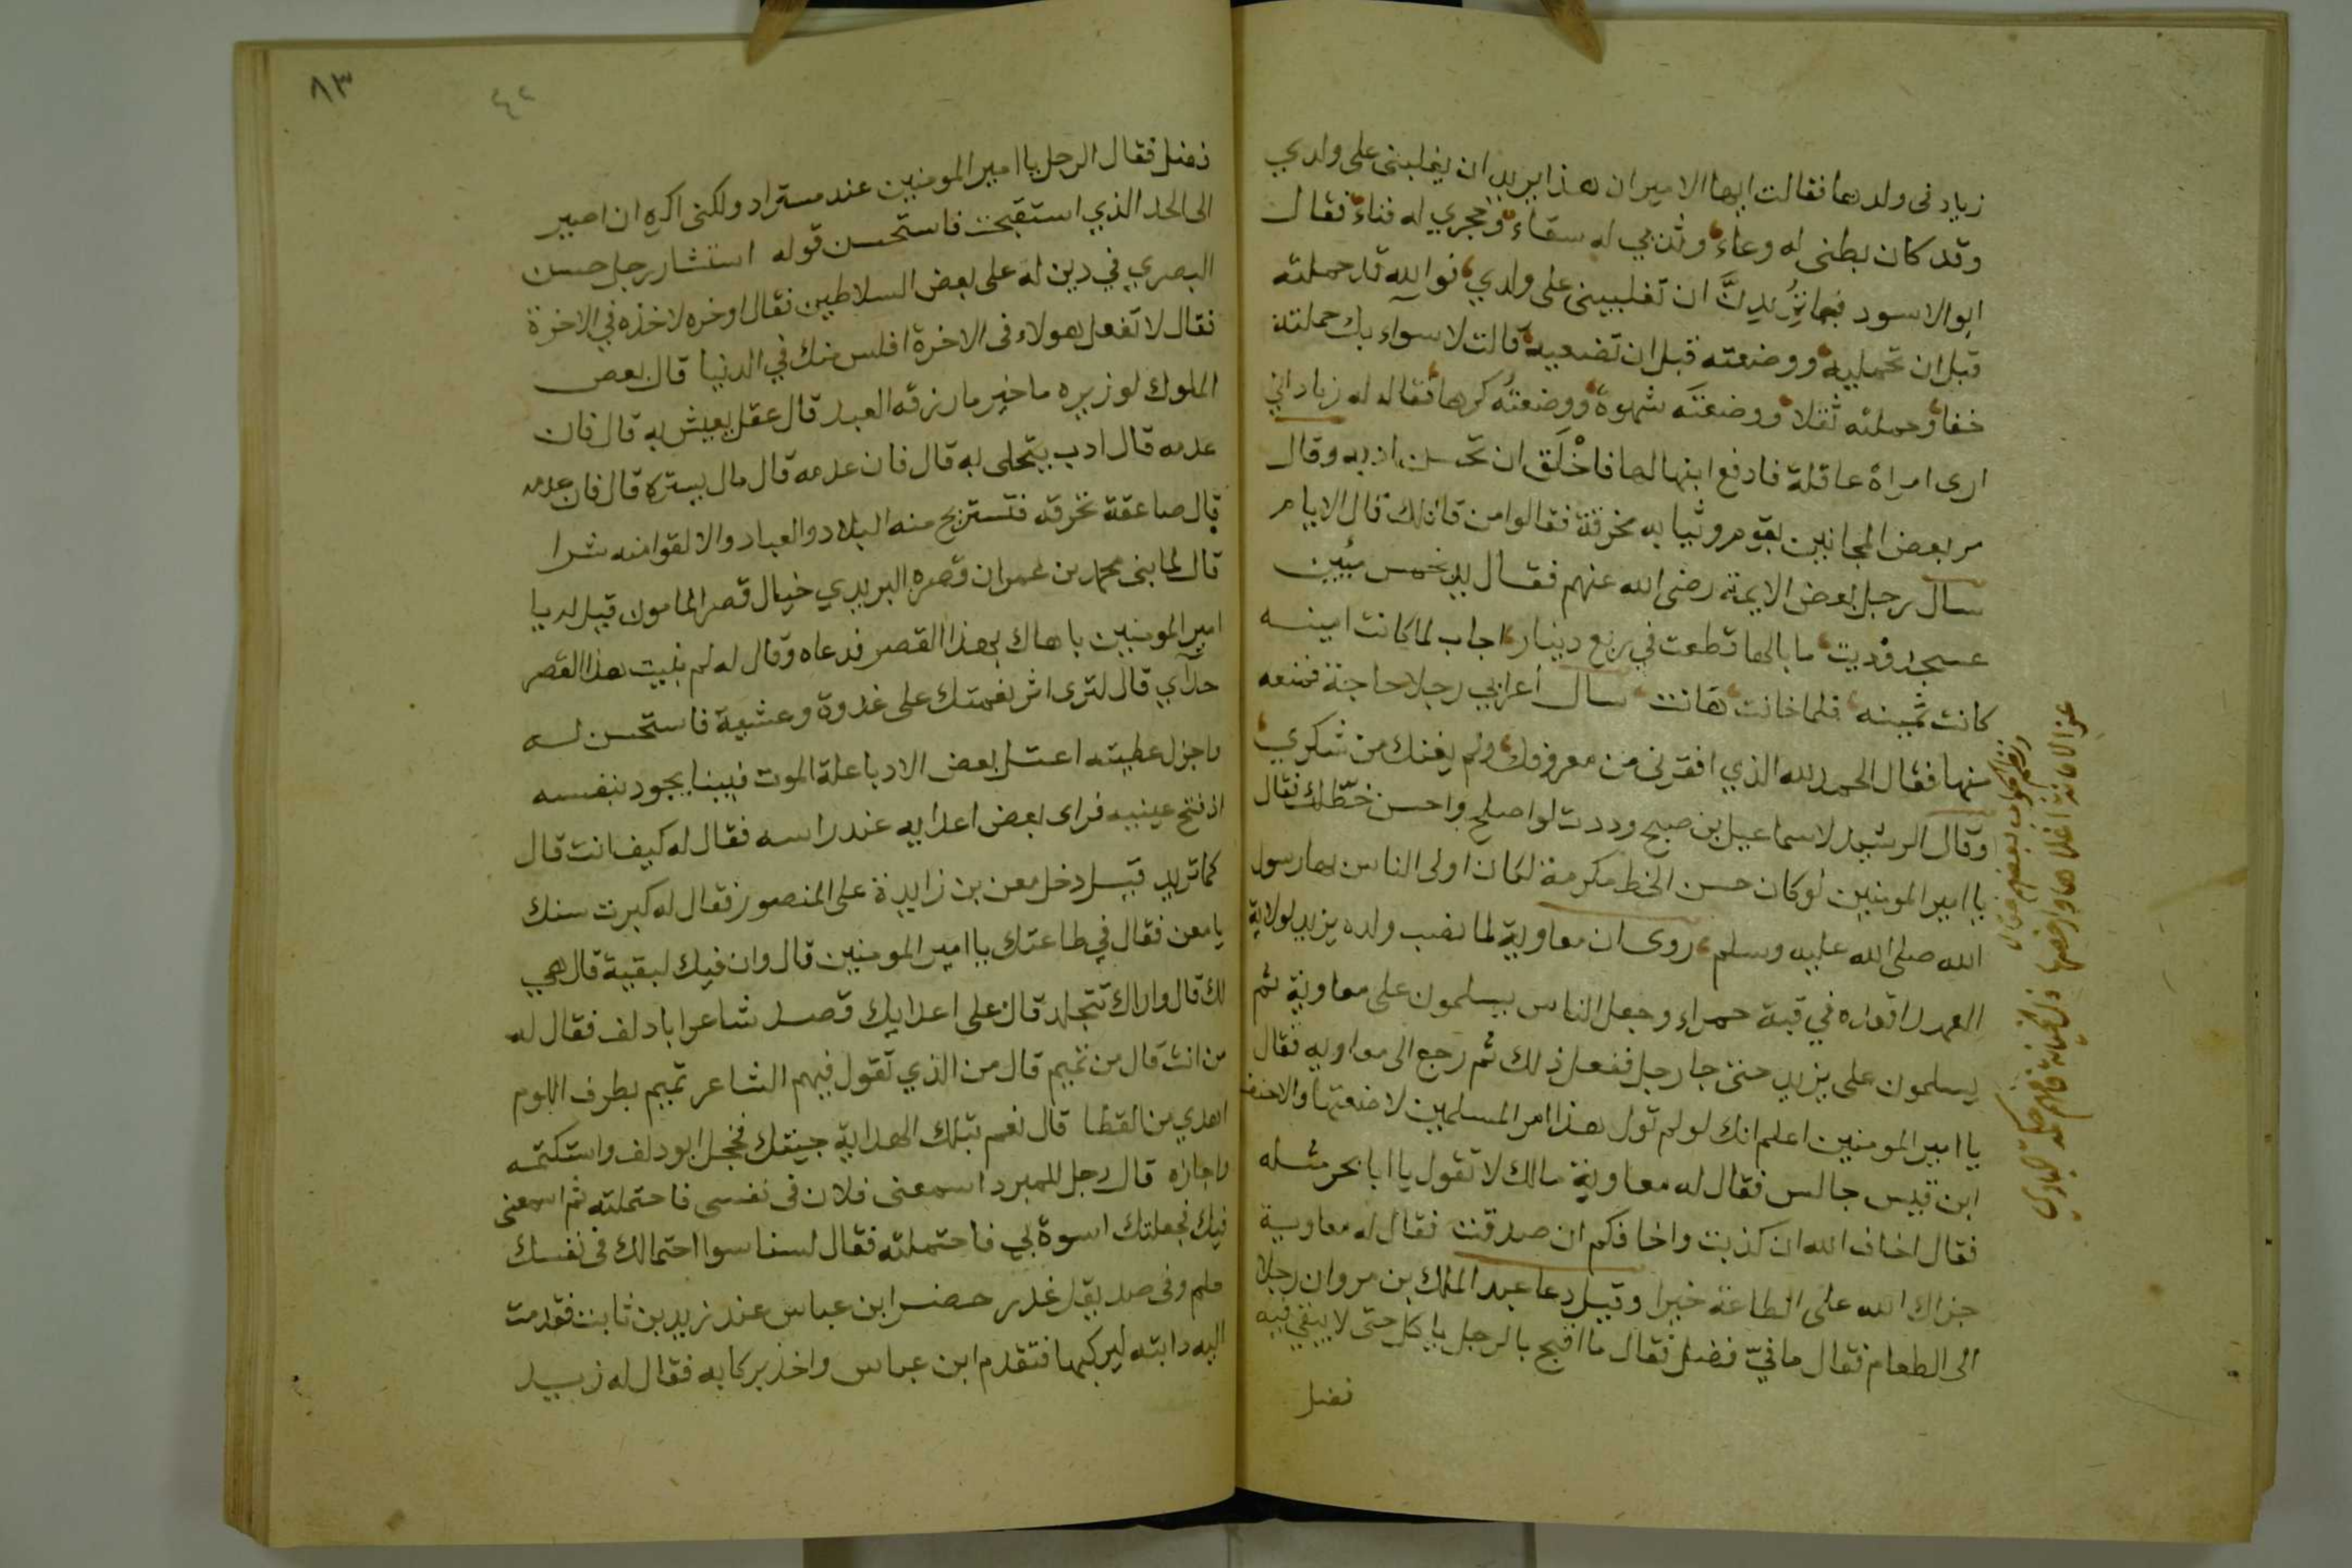 زياد فى ولدهما فقالت ايها الامير ان هذا يريد ان يغلبنى على ولدي
وقد كان بطنى له وعاء وثديي له سقاء وحجري له فناء فقال
ابو الاسود بهذا تريدين ان تغلبينى على ولدي فوالله قد حملته
قبل ان تحمليه ووضعته قبل ان تضعيه قالت لا سواء بك حملته
خفا وحملته ثقلا ووضعته شهوة ووضعته كرها فقال له زياد اني
ارى امراة عاقلة فادفع ابنها لها فاخلق ان تحسن ادبه وقال
مر بعض المجانين بقوم وثيابه مخرقة فقالوا من قال لك قال الايام
سال رجل بعض الايمة رضى الله عنهم فقال يد بخمس مئين
عسجد وديت ما بالها قطعت في ربع دينار اجاب لما كانت امينه
كانت ثمينه فلما خانت هانت سال اعرابي رجلا حاجة فمنعه
منها فقال الحمد لله الذي افقرنى من معروفك ولم يغنك من شكري
وقال الرشيد لاسماعيل بن صبيح وددت لو اصلح واحسن خطك فقال
يا امير المومنين لو كان حسن الخط مكرمة لكان اولى الناس بها رسول
الله صلى الله عليه وسلم روى ان معاوية لما نصب ولده يزيد لولاية
العهد اقعده في قبة حمراء وجعل الناس يسلمون على معاوية ثم
يسلمون على يزيد حتى جا رجل ففعل ذلك ثم رجع الى معاويه فقال
يا امير المومنين اعلم انك لو لم تول هذا امر المسلمين لاضعتها والاحنف
ابن قيس جالس فقال له معاوية مالك لا تقول يا ابا بحر مثله
فقال اخاف الله ان كذبت واخافكم ان صدقت فقال له معاوية
جزاك الله على الطاعة خيرا وقيل دعا عبد الملك بن مروان رجلا
الى الطعام فقال ما فيّ فضل فقال ما اقبح بالرجل ياكل حتى لا يبقي فيه
فضل
عز الامانة اغلاها وارخصها
ذل الخيانة فافهم حكمة الباري
٨٣
٤٢
فضل فقال الرجل يا امير المومنين عند مستزاد ولكنى اكره ان اصير
الى الحد الذي استقبحت فاستحسن قوله استشار رجل حسن
البصري في دين له على بعض السلاطين فقال اوخره لاخذه في الاخرة
فقال لا تفعل هولاء فى الاخرة افلس منك في الدنيا قال بعض
الملوك لوزيره ما خير ما رزقه العبد قال عقل يعيش به قال فان
عدمه قال ادب يتحلى به قال فان عدمه قال مال يستره قال فان عدمه
قال صاعقة تحرقه فتستريح منه البلاد والعباد والا لقوا منه شرا
قال لما بنى محمد بن عمران قصره البريدي خيال قصر المامون قيل له يا
امير المومنين باهاك بهذا القصر فدعاه وقال له لم بنيت هذا القصر
حذآي قال لترى اثر نعمتك على غدوة وعشية فاستحسن له
واجزل عطيته اعتل بعض الادبا علة الموت فبينا يجود بنفسه
اذ فتح عينيه فراى بعض اعدايه عند راسه فقال له كيف انت قال
كما تريد قيل دخل معن بن زايدة على المنصور فقال له كبرت سنك
يا معن فقال في طاعتك يا امير المومنين قال وان فيك لبقية قال هي
لك قال واراك تتجلد قال على اعدايك قصد شاعر ابا دلف فقال له
من انت قال من تميم قال من الذي تقول فيهم الشاعر تميم بطرف اللوم
اهدي من القطا قال نعم بتلك الهداية جيتك فخجل ابو دلف واستكتمه
واجازه قال رجل للمبرد اسمعنى فلان فى نفسى فاحتملته ثم اسمعنى
فيك فجعلتك اسوة لي فاحتملته فقال لسنا سوا احتمالك فى نفسك
حلم وفى صديقك غدر حضر ابن عباس عند زيد بن ثابت فقدمت
اليه دابته ليركبها فتقدم ابن عباس واخذ بركابه فقال له زيد